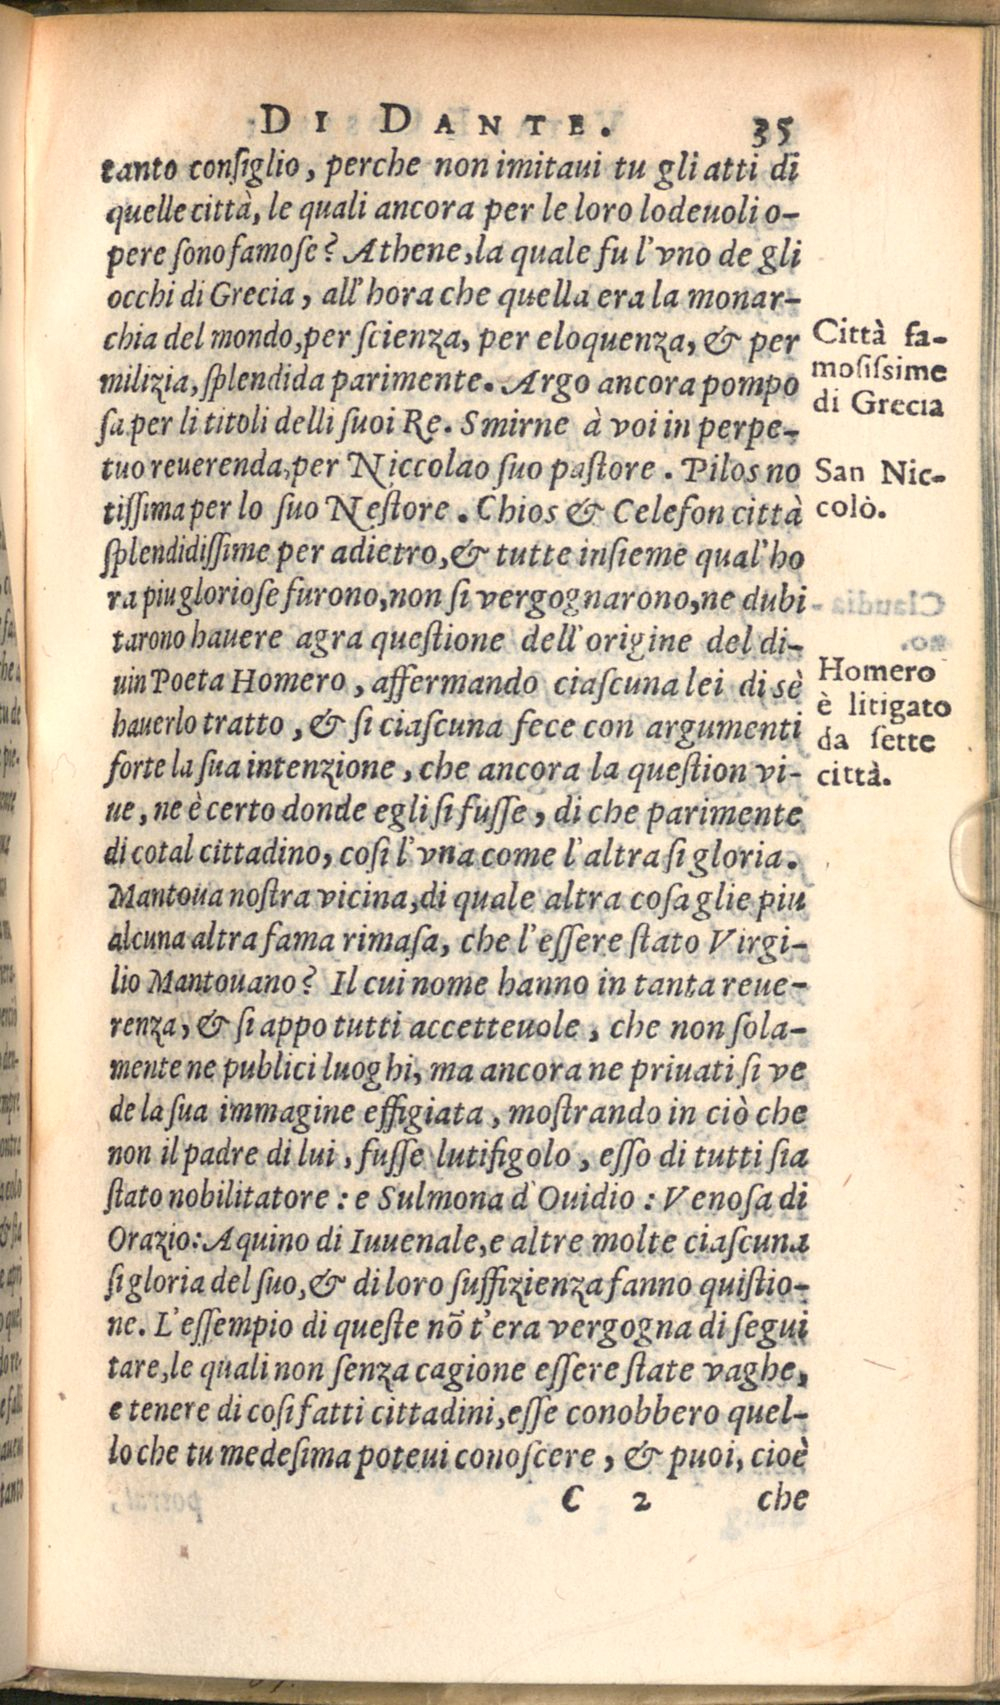 DI DANTE. 35
tanto conſiglio, perche non imitaui tu gli atti di
quelle città, le quali ancora per le loro lodeuoli o-
pere ſono famoſe? Athene, la quale fu l'vno de gli
occhi di Grecia, all'hora che quella era la monar-
chia del mondo, per ſcienza, per eloquenza, & per
milizia, ſplendida parimente. Argo ancora pompo
ſa per li titoli delli ſuoi Re. Smirne à voi in perpe-
tuo reuerenda, per Niccolao ſuo paſtore. Pilos no
tiſſima per lo ſuo Neſtore. Chios & Celefon città
ſplendidiſſime per adietro, & tutte inſieme qual'ho
ra piu glorioſe furono, non ſi vergognarono, ne dubi
tarono hauere agra queſtione dell'origine del di-
uin Poeta Homero, affermando ciaſcuna lei di sè
hauerlo tratto, & ſi ciaſcuna fece con argumenti
forte la ſua intenzione, che ancora la queſtion vi-
ue, ne è certo donde egli ſi fuſſe, di che parimente
di cotal cittadino, coſi l'vna come l'altra ſi gloria.
Mantoua noſtra vicina, di quale altra coſa glie piu
alcuna altra fama rimaſa, che l'eſſere ſtato Virgi-
lio Mantouano? Il cui nome hanno in tanta reue-
renza, & ſi appo tutti accetteuole, che non ſola-
mente ne publici luoghi, ma ancora ne priuati ſi ve
de la ſua immagine effigiata, moſtrando in ciò che
non il padre di lui, fuſſe lutifigolo, eſſo di tutti ſia
ſtato nobilitatore: e Sulmona d'Ouidio: Venoſa di
Orazio: Aquino di Iuuenale, e altre molte ciaſcuna
ſi gloria del ſuo, & di loro ſuffizienza fanno quiſtio-
ne. L'eſſempio di queſte nõ t'era vergogna di ſegui
tare, le quali non ſenza cagione eſſere ſtate vaghe,
e tenere di coſi fatti cittadini, eſſe conobbero quel-
lo che tu medeſima poteui conoſcere, & puoi, cioè
C 2 che
Città fa-
moſiſsime
di Grecia
San Nic-
colò.
Homero
è litigato
da ſette
città.